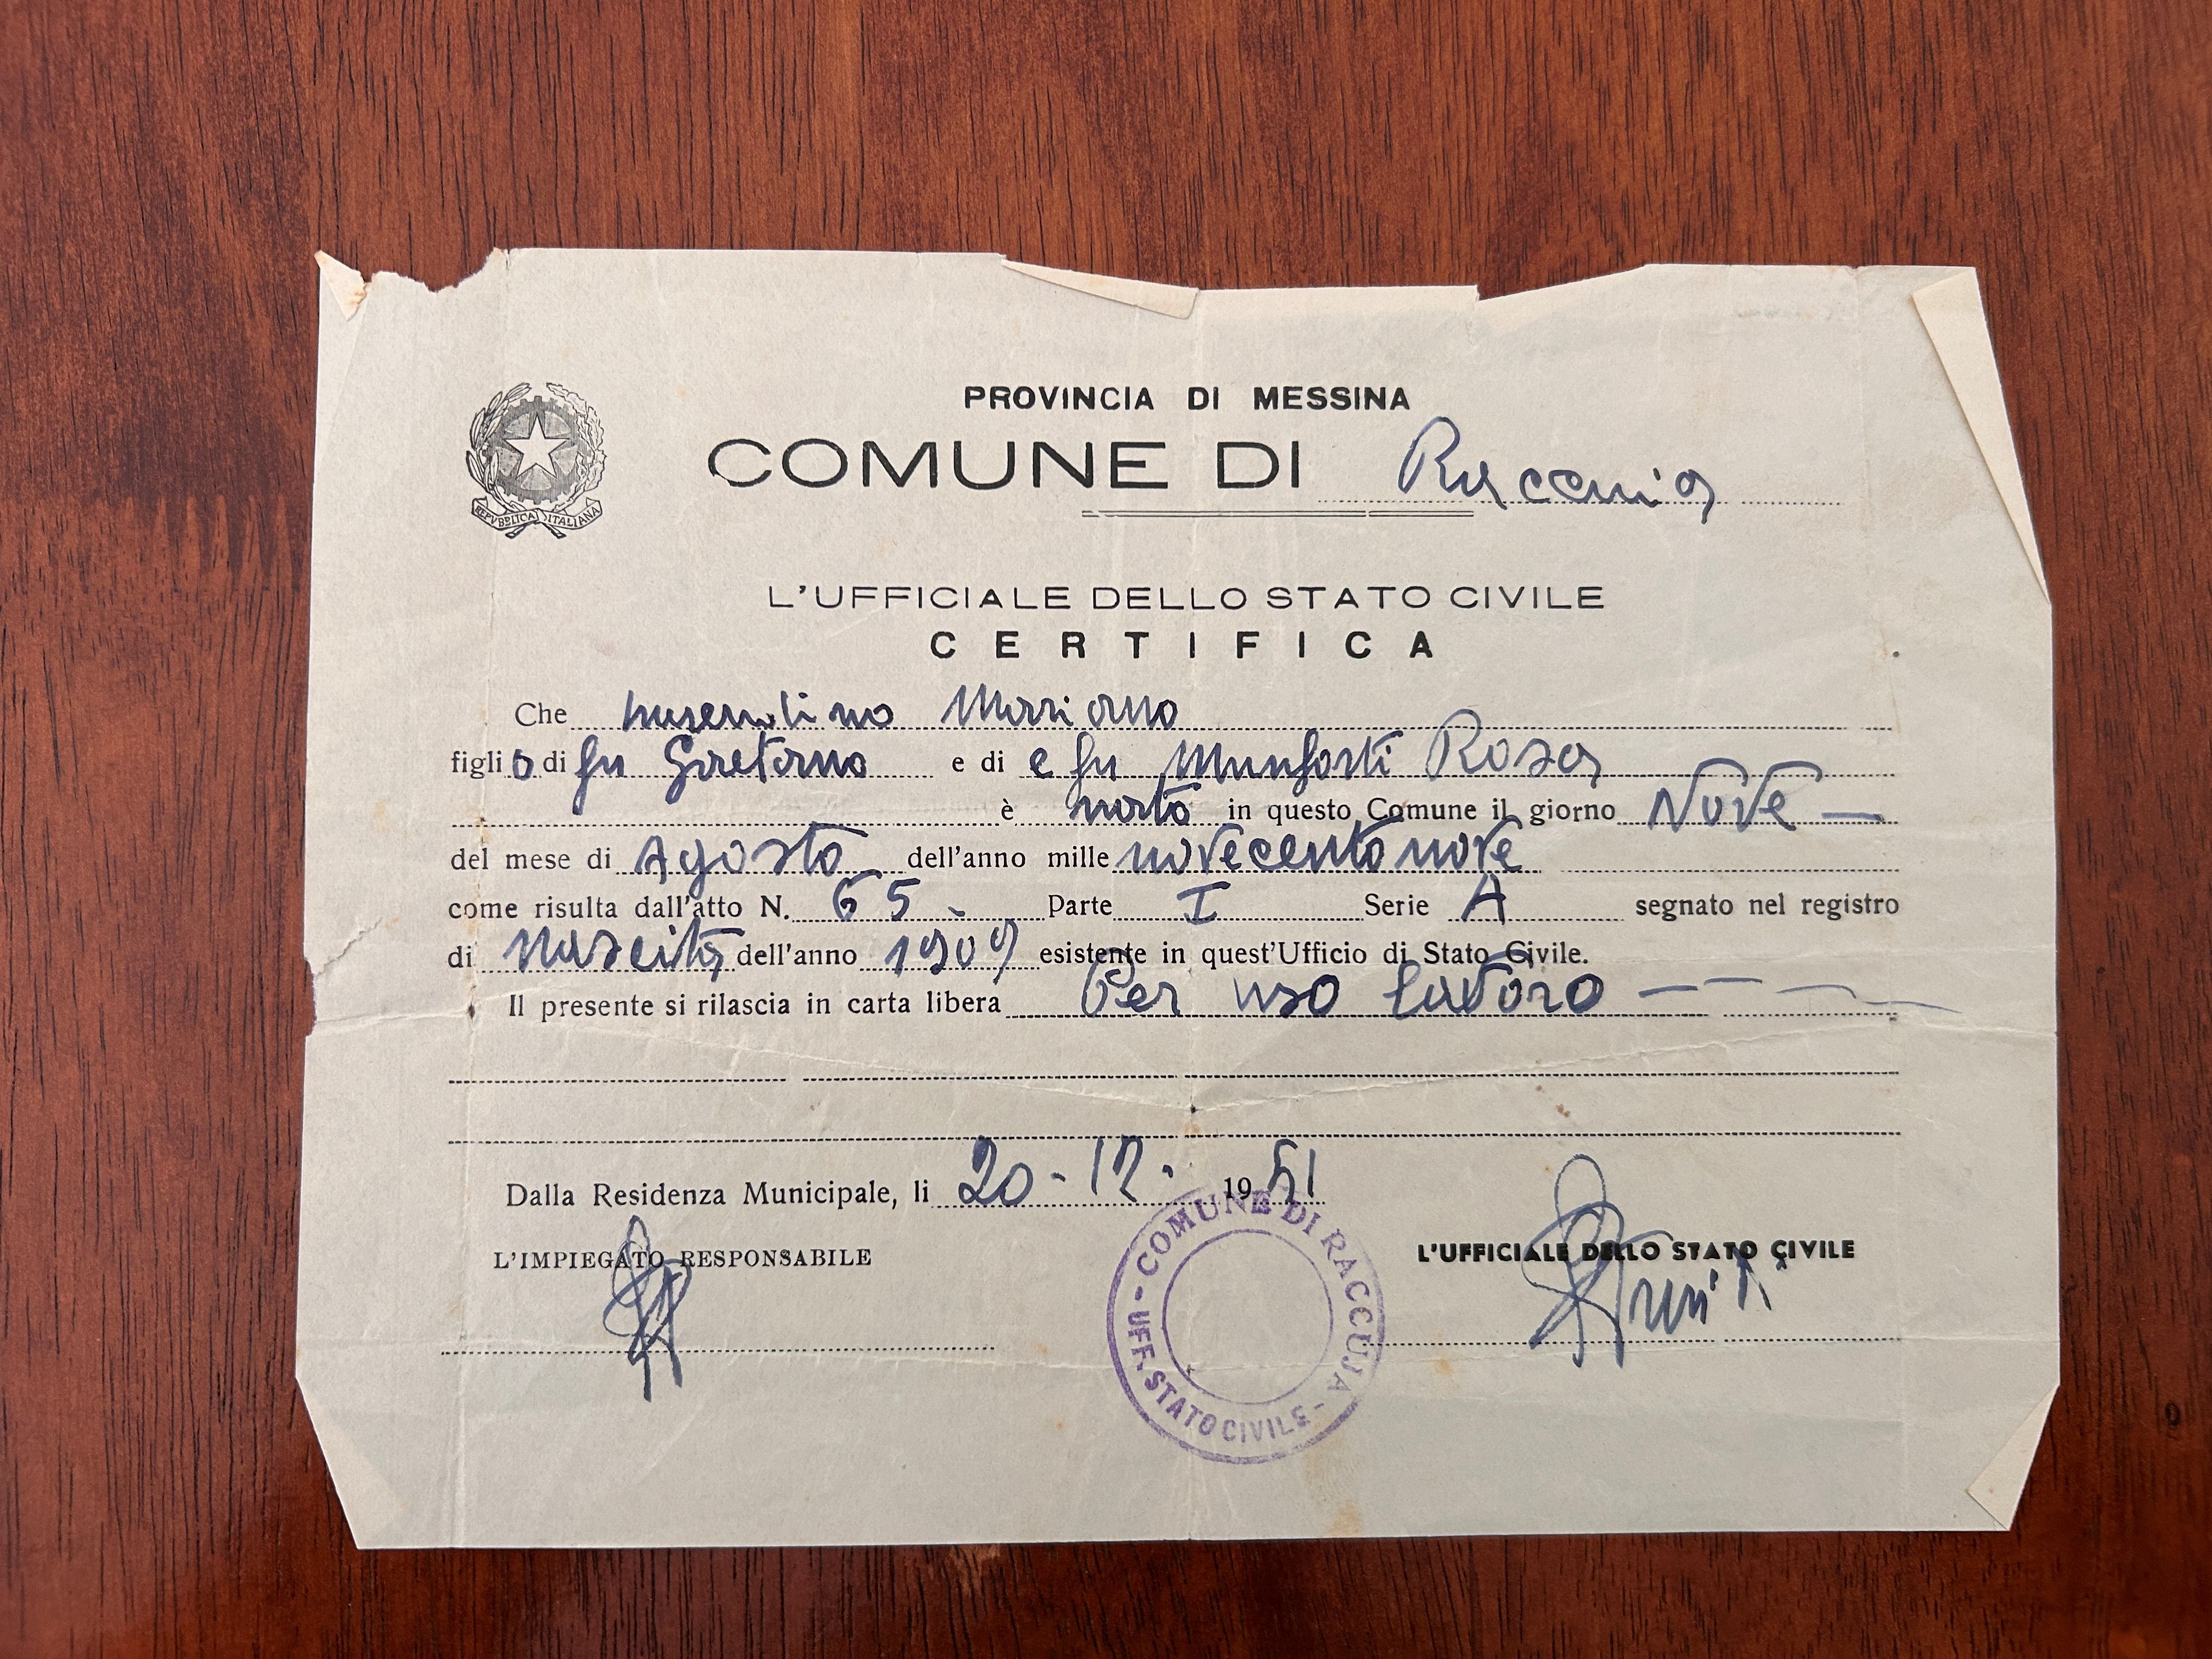 REPVBBLICA ITALIANA
PROVINCIA DI MESSINA
COMUNE DI Raccuia
L'UFFICIALE DELLO STATO CIVILE
CERTIFICA
Che Mariano
figlio di fu Gaetano e di e fu Munforti Rosa
è nato in questo Comune il giorno Nove —
del mese di Agosto dell'anno mille novecentonove
come risulta dall'atto N. 65 - Parte I Serie A segnato nel registro
di nascita dell'anno 1909 esistente in quest'Ufficio di Stato Civile.
Il presente si rilascia in carta libera Per uso lavoro — — — —
Dalla Residenza Municipale, li 20-12. 1951
L'IMPIEGATO RESPONSABILE
L'UFFICIALE DELLO STATO CIVILE
- COMUNE DI RACCUJA -
UFF. STATO CIVILE